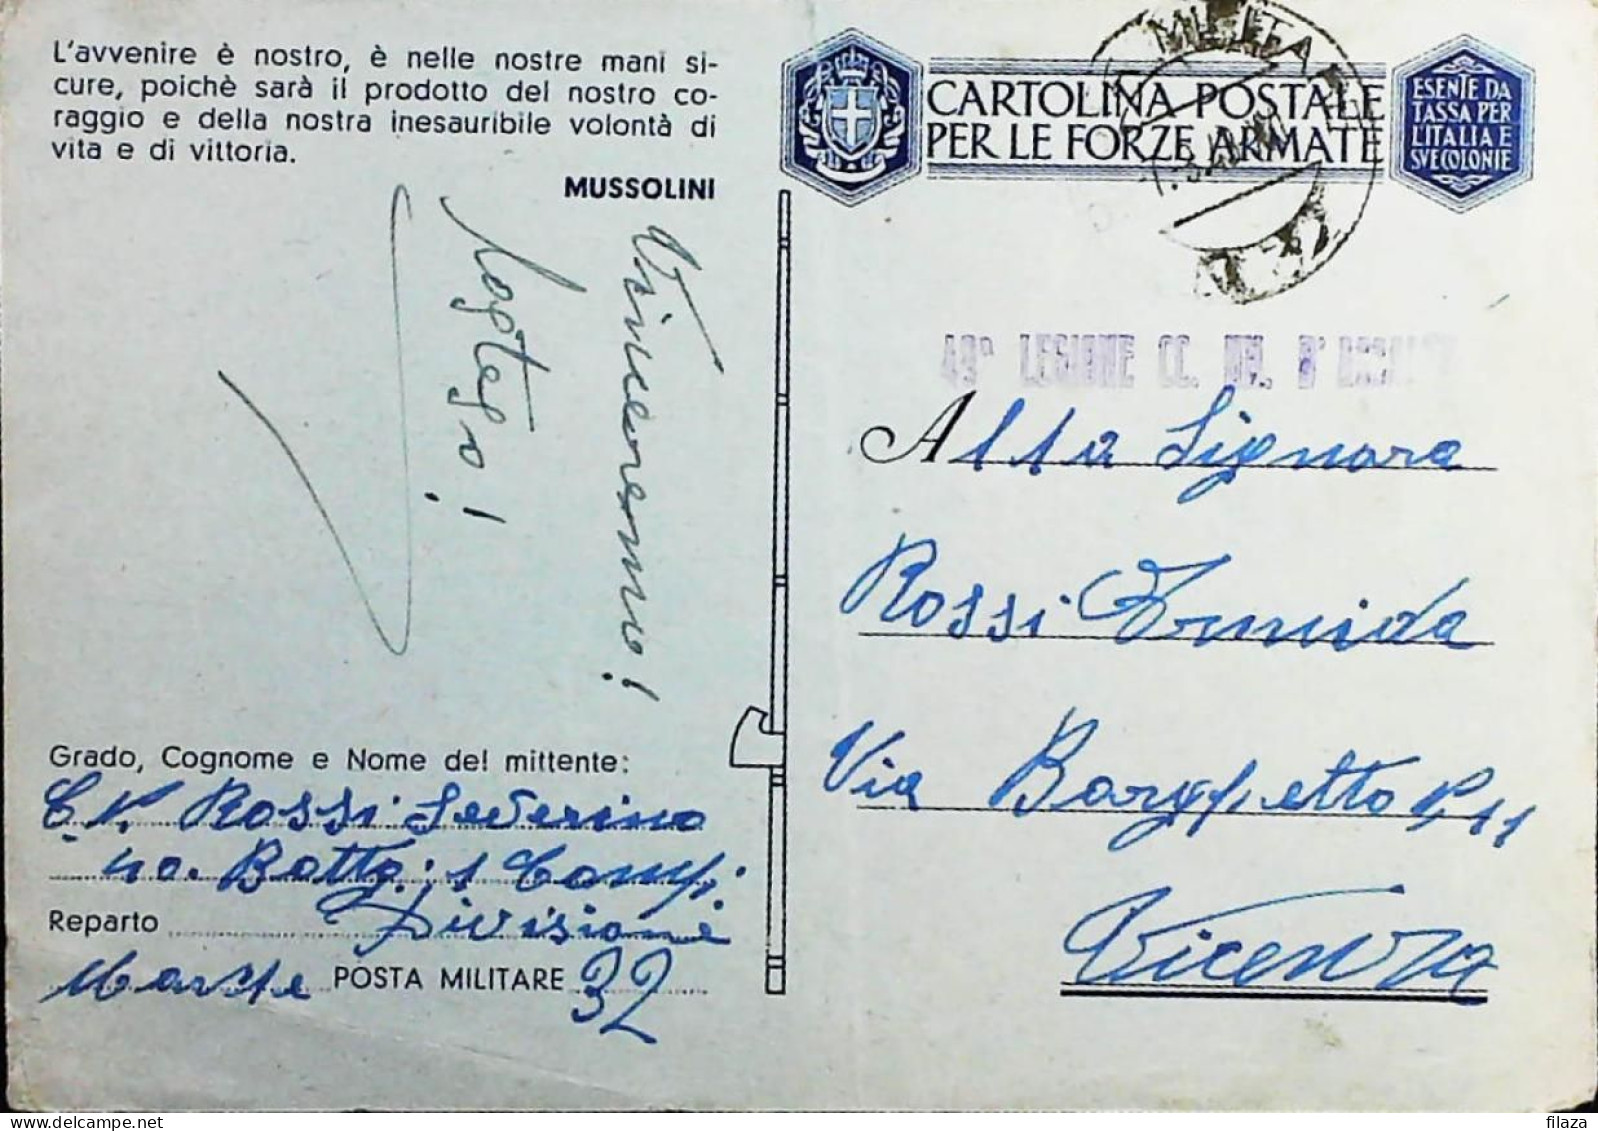 L'avvenire è nostro, è nelle nostre mani si-
cure, poichè sarà il prodotto del nostro co-
raggio e della nostra inesauribile volontà di
vita e di vittoria.
MUSSOLINI
Vinceremo!
Grado, Cognome e Nome del mittente:
C.N. Rossi Severino
40. Battg: 1 Comp.
Reparto Divisione
Marche POSTA MILITARE 32
CARTOLINA POSTALE
PER LE FORZE ARMATE
ESENTE DA
TASSA PER
L'ITALIA E
SVE COLONIE
49ª LEGIONE CC. NN. D'
Alla Signora
Rossi Armida
Via Borghetto
Vicenza
filaza